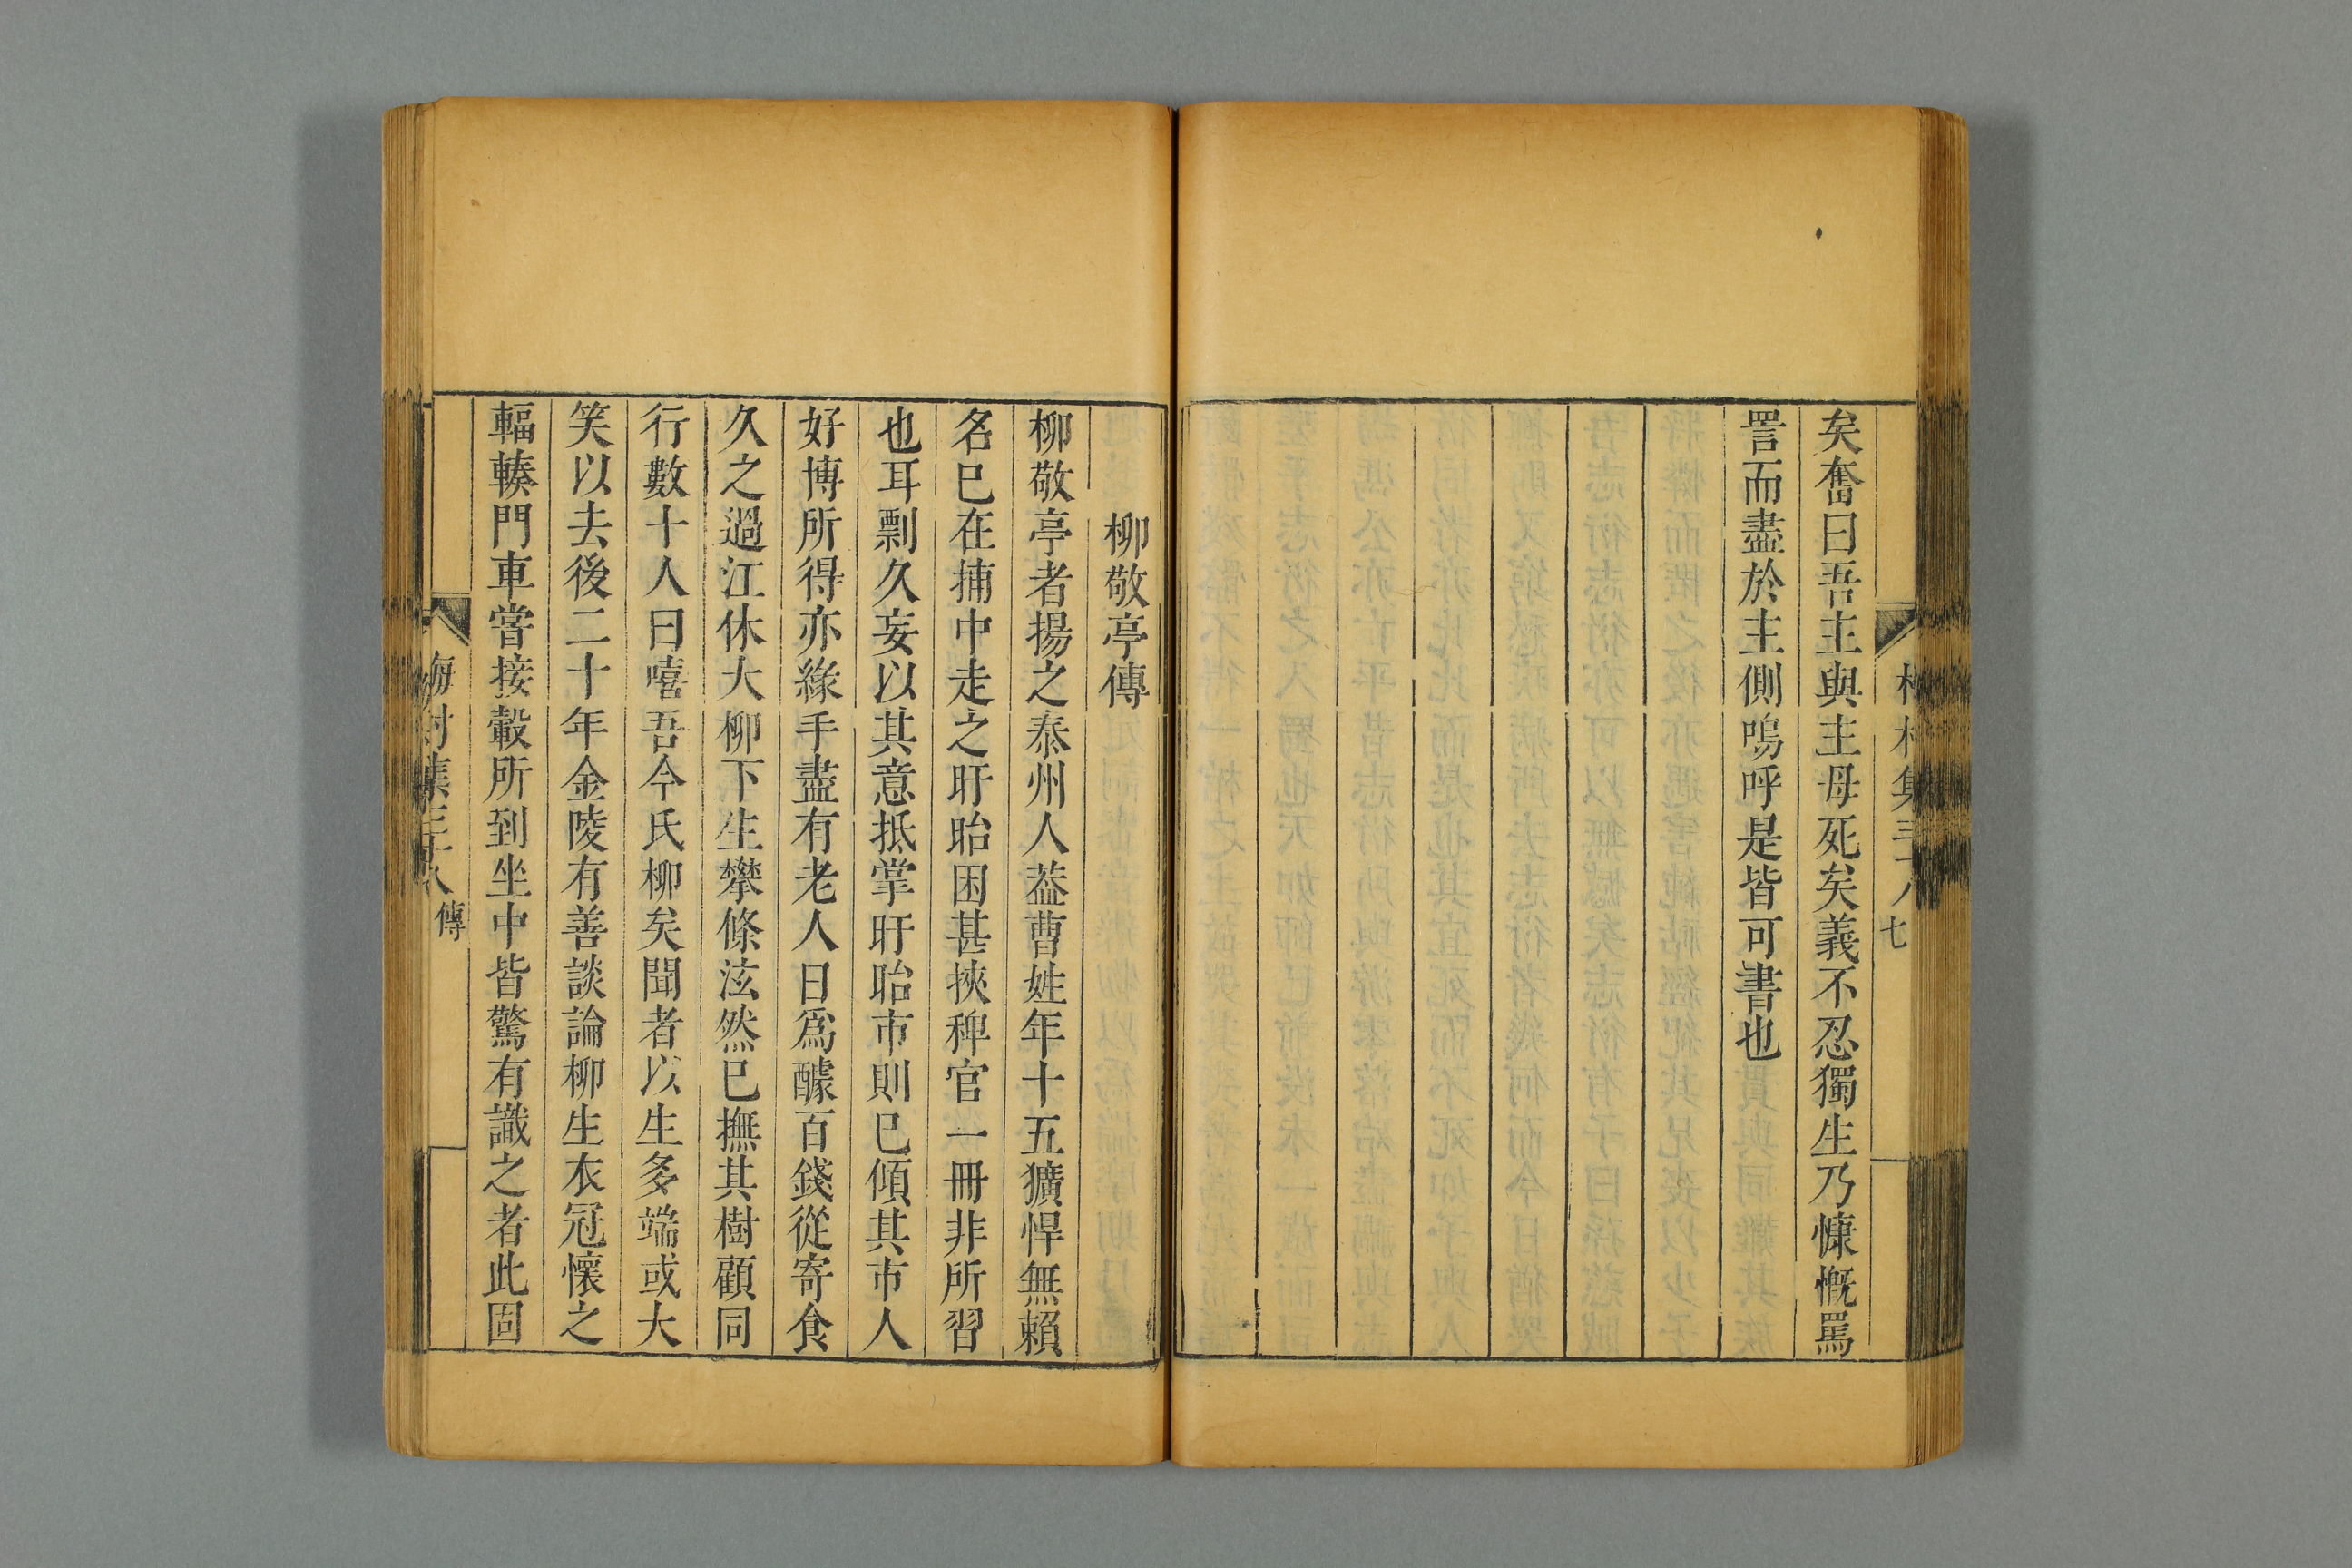 矣奮曰吾主與主母死矣義不忍獨生乃慷慨罵
詈而盡於主側嗚呼是皆可書也
七
柳敬亭傳
柳敬亭者揚之泰州人葢曹姓年十五獷悍無賴
名已在捕中走之盱眙困甚挾稗官一冊非所習
也耳剽久妄以其意抵掌盱眙市則已傾其市人
好博所得亦緣手盡有老人日爲醵百錢從寄食
久之過江休大柳下生攀條泫然已撫其樹顧同
行數十人曰嘻吾今氏柳矣聞者以生多端或大
笑以去後二十年金陵有善談論柳生衣冠懷之
輻輳門車嘗接轂所到坐中皆驚有識之者此固
梅村集三十八
傳